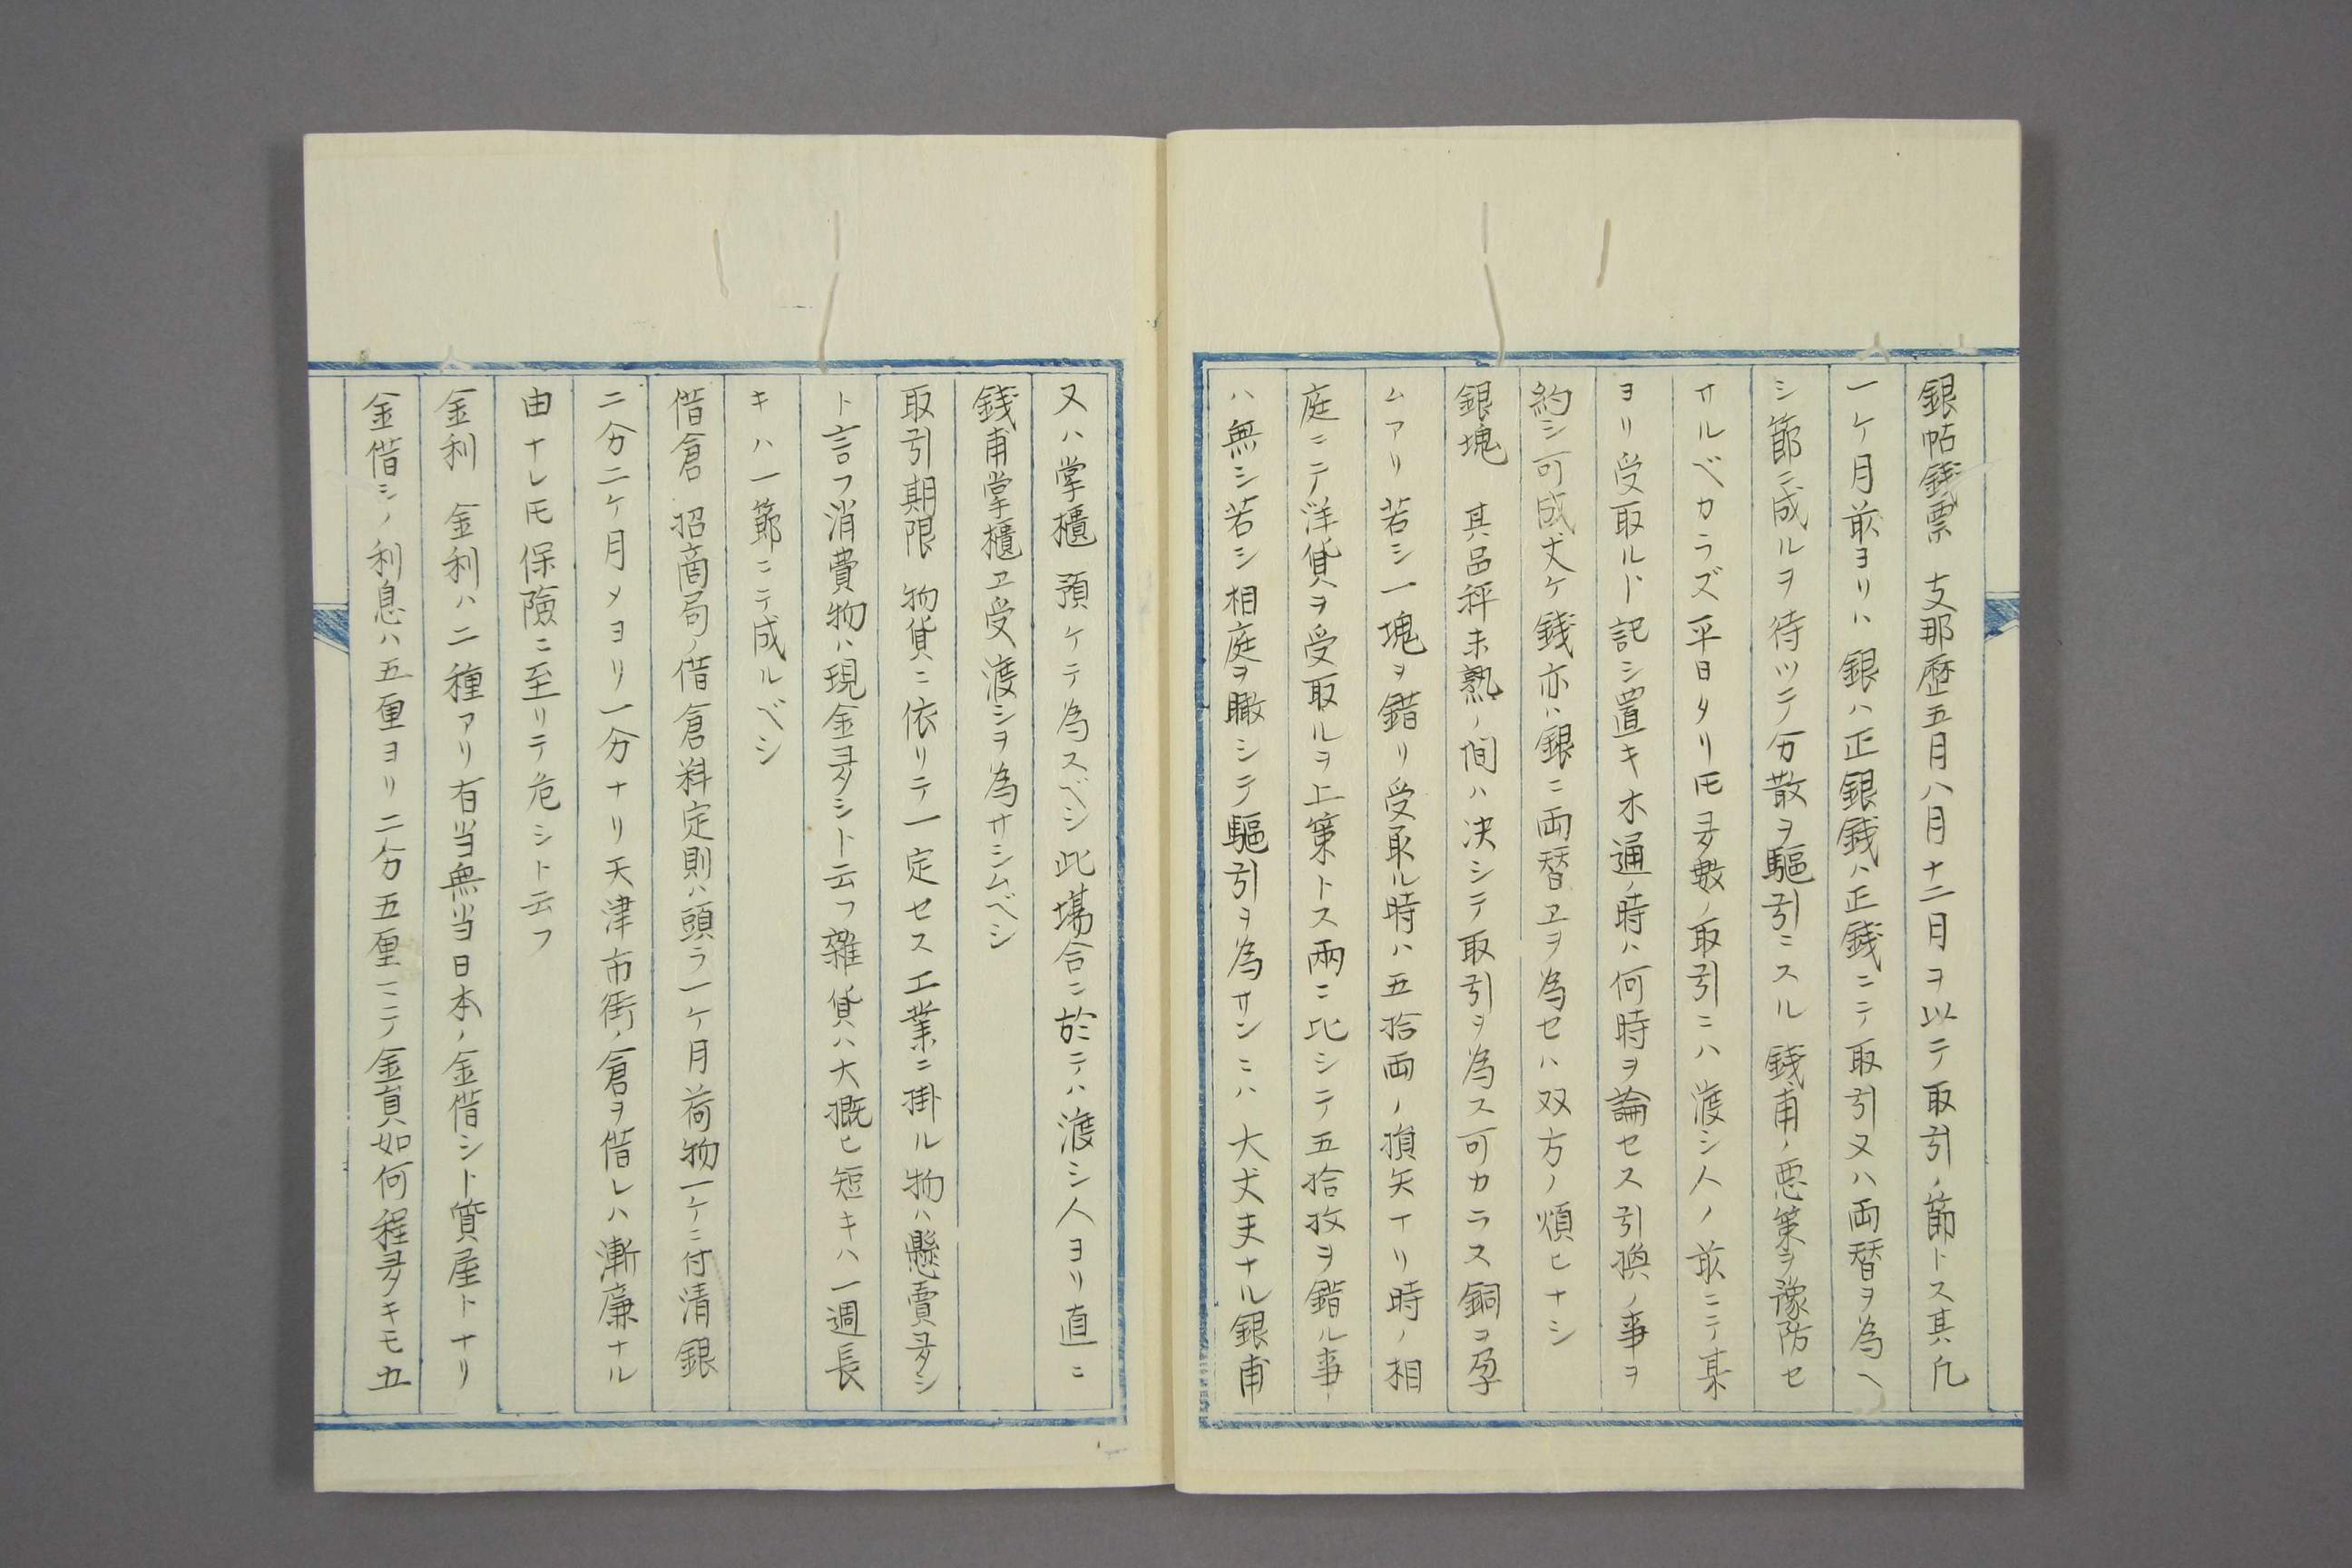 銀帖錢票　支那歴五月八月十二月ヲ以テ取引ノ節トス其凡
一ケ月前ヨリハ銀ハ正銀錢ハ正錢ニテ取引又ハ両替ヲ為ヘ
シ節ニ成ルヲ待ツテ分散ヲ驅引ニスル錢甫ノ悪策ヲ豫防セ
サルベカラズ平日タリ𪜈多數ノ取引ニハ渡シ人ノ前ニテ某
ヨリ受取ルト記シ置キ木通ノ時ハ何時ヲ論セス引換ノ事ヲ
約シ可成丈ケ錢亦ハ銀ニ両替ヱヲ為セハ双方ノ煩ヒナシ
銀塊　其呂秤未熟ノ間ハ决シテ取引ヲ為ス可カラス銅ヲ孕
ムアリ若シ一塊ヲ錯リ受取ル時ハ五拾両ノ損矢ナリ時ノ相
庭ニテ洋貨ヲ受取ルヲ上策トス兩ニ比シテ五拾枚ヲ錯ル事
ハ無シ若シ相庭ヲ瞰シテ驅引ヲ為サンニハ大丈夫ナル銀甫
又ハ掌櫃預ケテ為スベシ此場合ニ於テハ渡シ人ヨリ直ニ
錢甫掌櫃ヱ受渡シヲ為サシムベシ
取引期限　物貨ニ依リテ一定セス工業ニ掛ル物ハ懸賣多シ
ト言フ消費物ハ現金多シト云フ雜貨ハ大概ヒ短キハ一週長
キハ一節ニテ成ルベシ
借倉　招商局ノ借倉料定則ハ頭ラ一ケ月荷物一ケニ付清銀
二分二ケ月メヨリ一分ナリ天津市街ノ倉ヲ借レハ漸廉ナル
由ナレ𪜈保險ニ至リテ危シト云フ
金利　金利ハ二種アリ有当無当日本ノ金借シト質屋トナリ
金借シノ利息ハ五厘ヨリ二分五厘ニテ金員如何程多キモ五